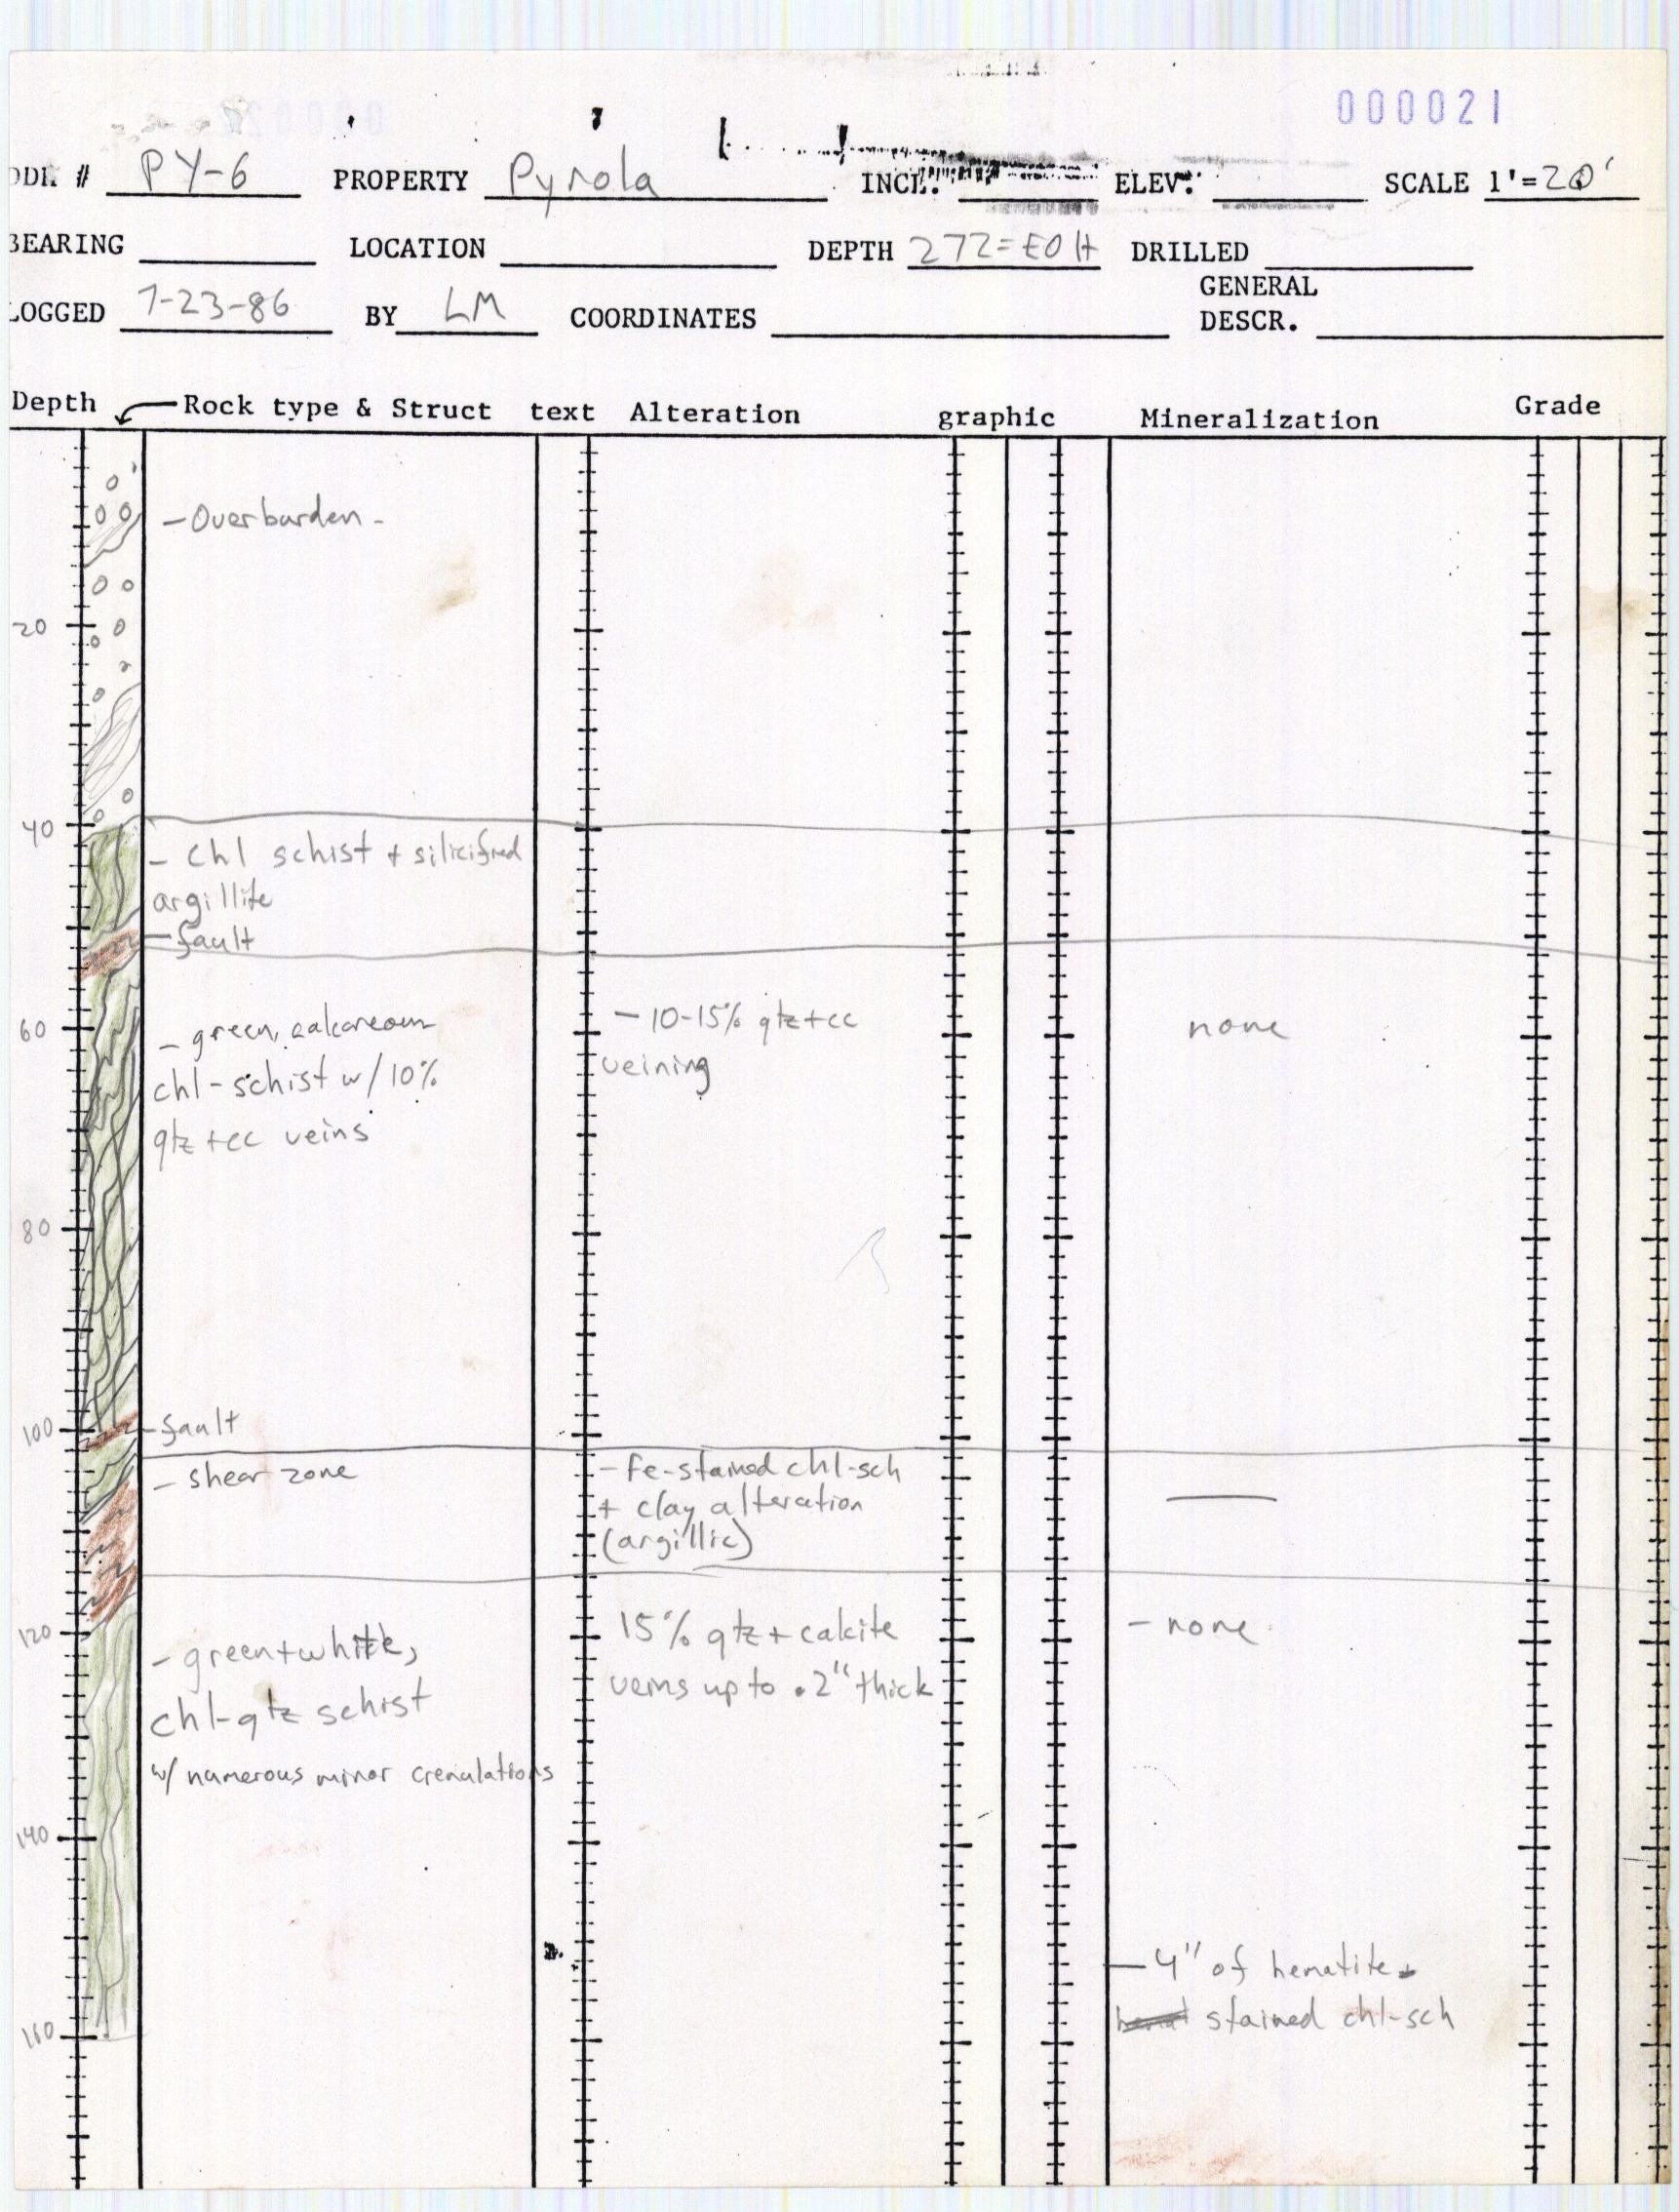 000021
DDH # PY-6 PROPERTY Pyrola INCL. ELEV. SCALE 1'=20'
BEARING LOCATION DEPTH 272=EOH DRILLED
LOGGED 7-23-86 BY LM COORDINATES GENERAL DESCR.
Depth Rock type & Struct text Alteration graphic Mineralization Grade
- Overburden -
20
40
- chl schist + silicified
argillite
- fault
60
- green, calcareous
chl-schist w/ 10%
qtz + cc veins
- 10-15% qtz + cc
veining
none
80
100
- fault
- shear zone
- Fe-stained chl-sch
+ clay alteration
(argillic)
120
- green + white,
chl-qtz schist
w/ numerous minor crenulations
15% qtz + calcite
veins up to .2" thick
- none
140
- 4" of hematite
stained chl-sch
160